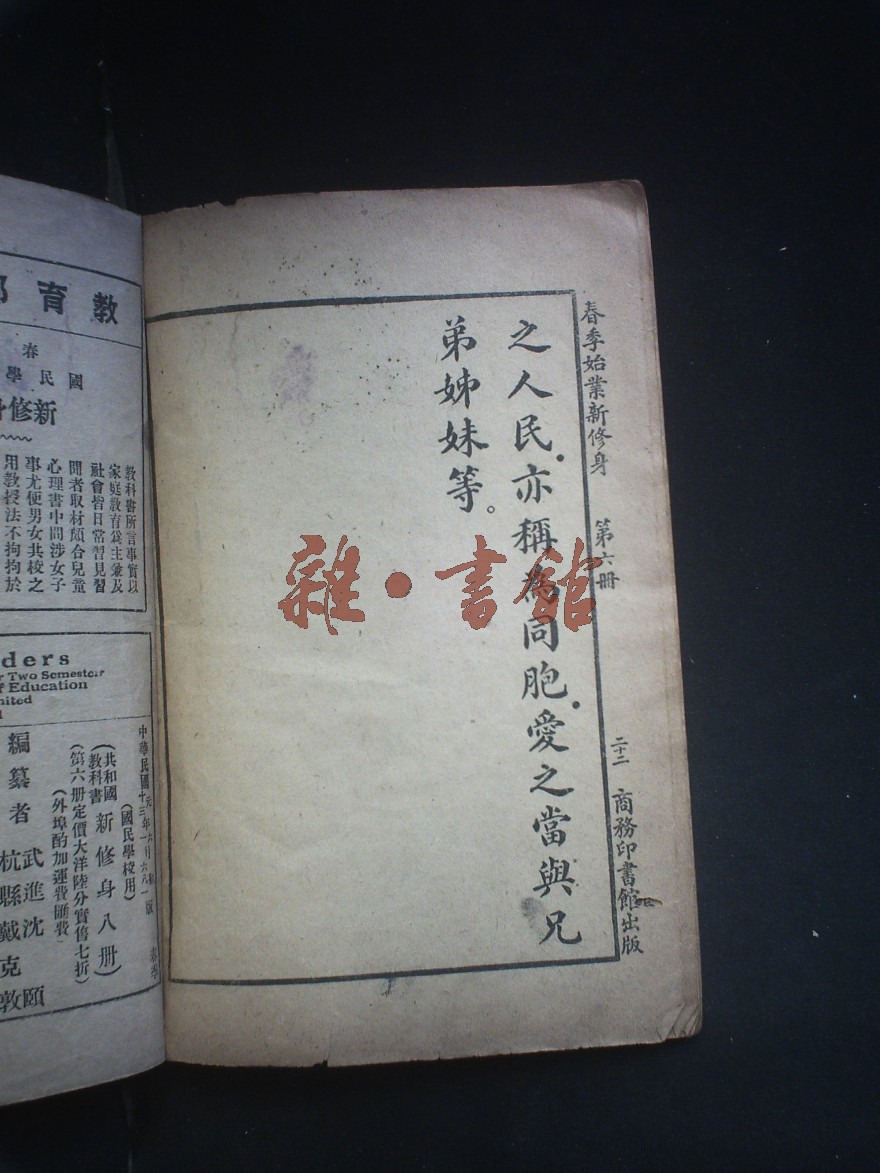 春季始業新修身 第六冊 二十二 商務印書館出版
之人民亦稱為同胞愛之當與兄
弟姊妹等。
雜·書館
教育
春
國民學
新修
教科書所言事實以
家庭教育為主兼及
社會皆日常習見習
聞者取材頗合兒童
心理書中間涉女子
事尤便男女共校之
用教授法不拘拘於
ders
r Two Semester
f Education
mited
中華民國
(國民學校用)
(共和國教科書 新修身八冊)
(第六册定價大洋陸分實售七折)
(外埠酌加運費匯費)
編纂者 武進沈頤
杭縣戴克敦